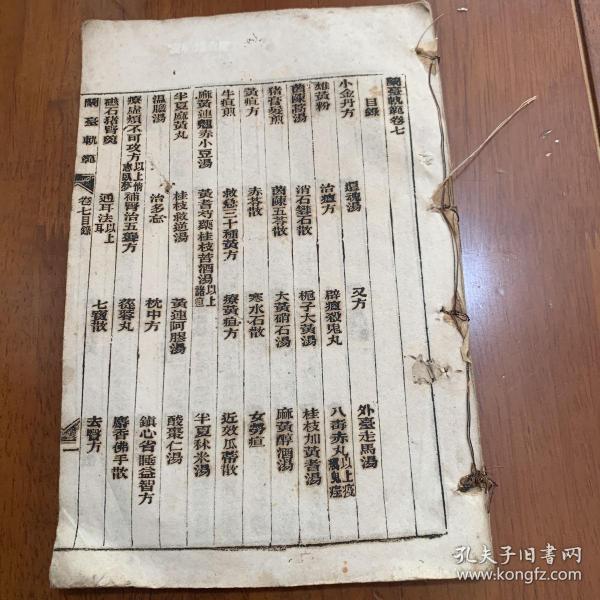 蘭臺軌範卷七
目錄
小金丹方 還魂湯 又方 外臺走馬湯
雄黃粉 治瘧方 辟瘟殺鬼丸 八毒赤丸以上疫癘鬼疰
茵陳蒿湯 消石礬石散 梔子大黃湯 桂枝加黃耆湯
猪膏髮煎 茵陳五苓散 大黃硝石湯 麻黃醇酒湯
黃疸方 赤苓散 寒水石散 女勞疸
牛疸煎 救急三十種黃方 療黃疸方 近效瓜蒂散
麻黃連翹赤小豆湯 黃耆芍藥桂枝苦酒湯以上諸疸
半夏麻黃丸 桂枝救逆湯 黃連阿膠湯 半夏秫米湯
溫膽湯 治多忘 枕中方 酸棗仁湯
療虛煩不可攻方以上情志臥夢 補腎治五聾方 蓯蓉丸 鎮心省睡益智方
磁石猪腎羹 通耳法以上耳 七寶散 麝香佛手散
去醫方
蘭臺軌範 卷七目錄 一
孔夫子旧書网
www.kongfz.com